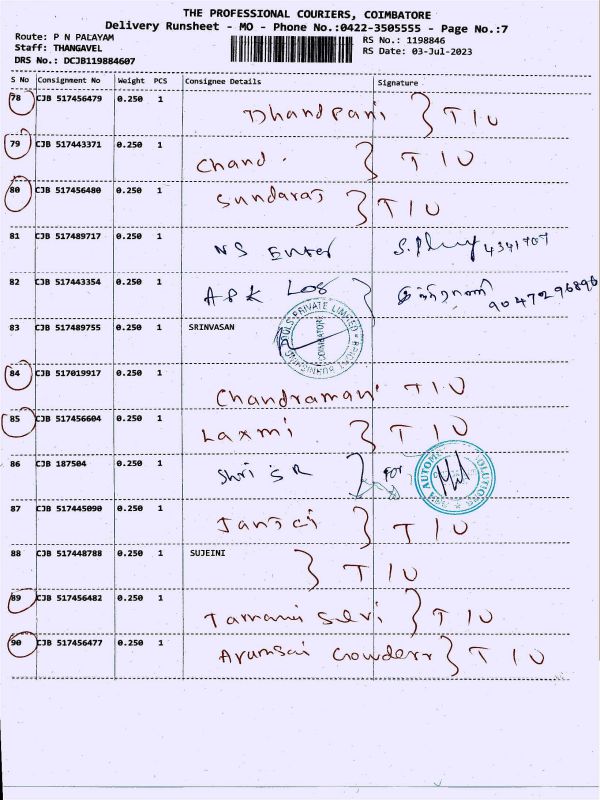 THE PROFESSIONAL COURIERS, COIMBATORE
Delivery Runsheet - MO - Phone No.:0422-3505555 - Page No.:7
Route: P N PALAYAM
Staff: THANGAVEL
DRS No.: DCJB119884607
RS No.: 1198846
RS Date: 03-Jul-2023
S No Consignment No Weight PCS Consignee Details Signature
78 CJB 517456479 0.250 1 Dhandpani } T I U
79 CJB 517443371 0.250 1 Chand. } T I U
80 CJB 517456480 0.250 1 Sundaraj } T I U
81 CJB 517489717 0.250 1 NS Enter
82 CJB 517443354 0.250 1 APK Log } இந்திராணி
9047296896
83 CJB 517489755 0.250 1 SRINVASAN
84 CJB 517019917 0.250 1 Chandraman T I U
85 CJB 517456604 0.250 1 Laxmi } T I U
86 CJB 187504 0.250 1 Shri SR } for
87 CJB 517445090 0.250 1 } T I U
88 CJB 517448788 0.250 1 SUJEINI } T I U
89 CJB 517456482 0.250 1 Selvi } T I U
90 CJB 517456477 0.250 1 } T I U